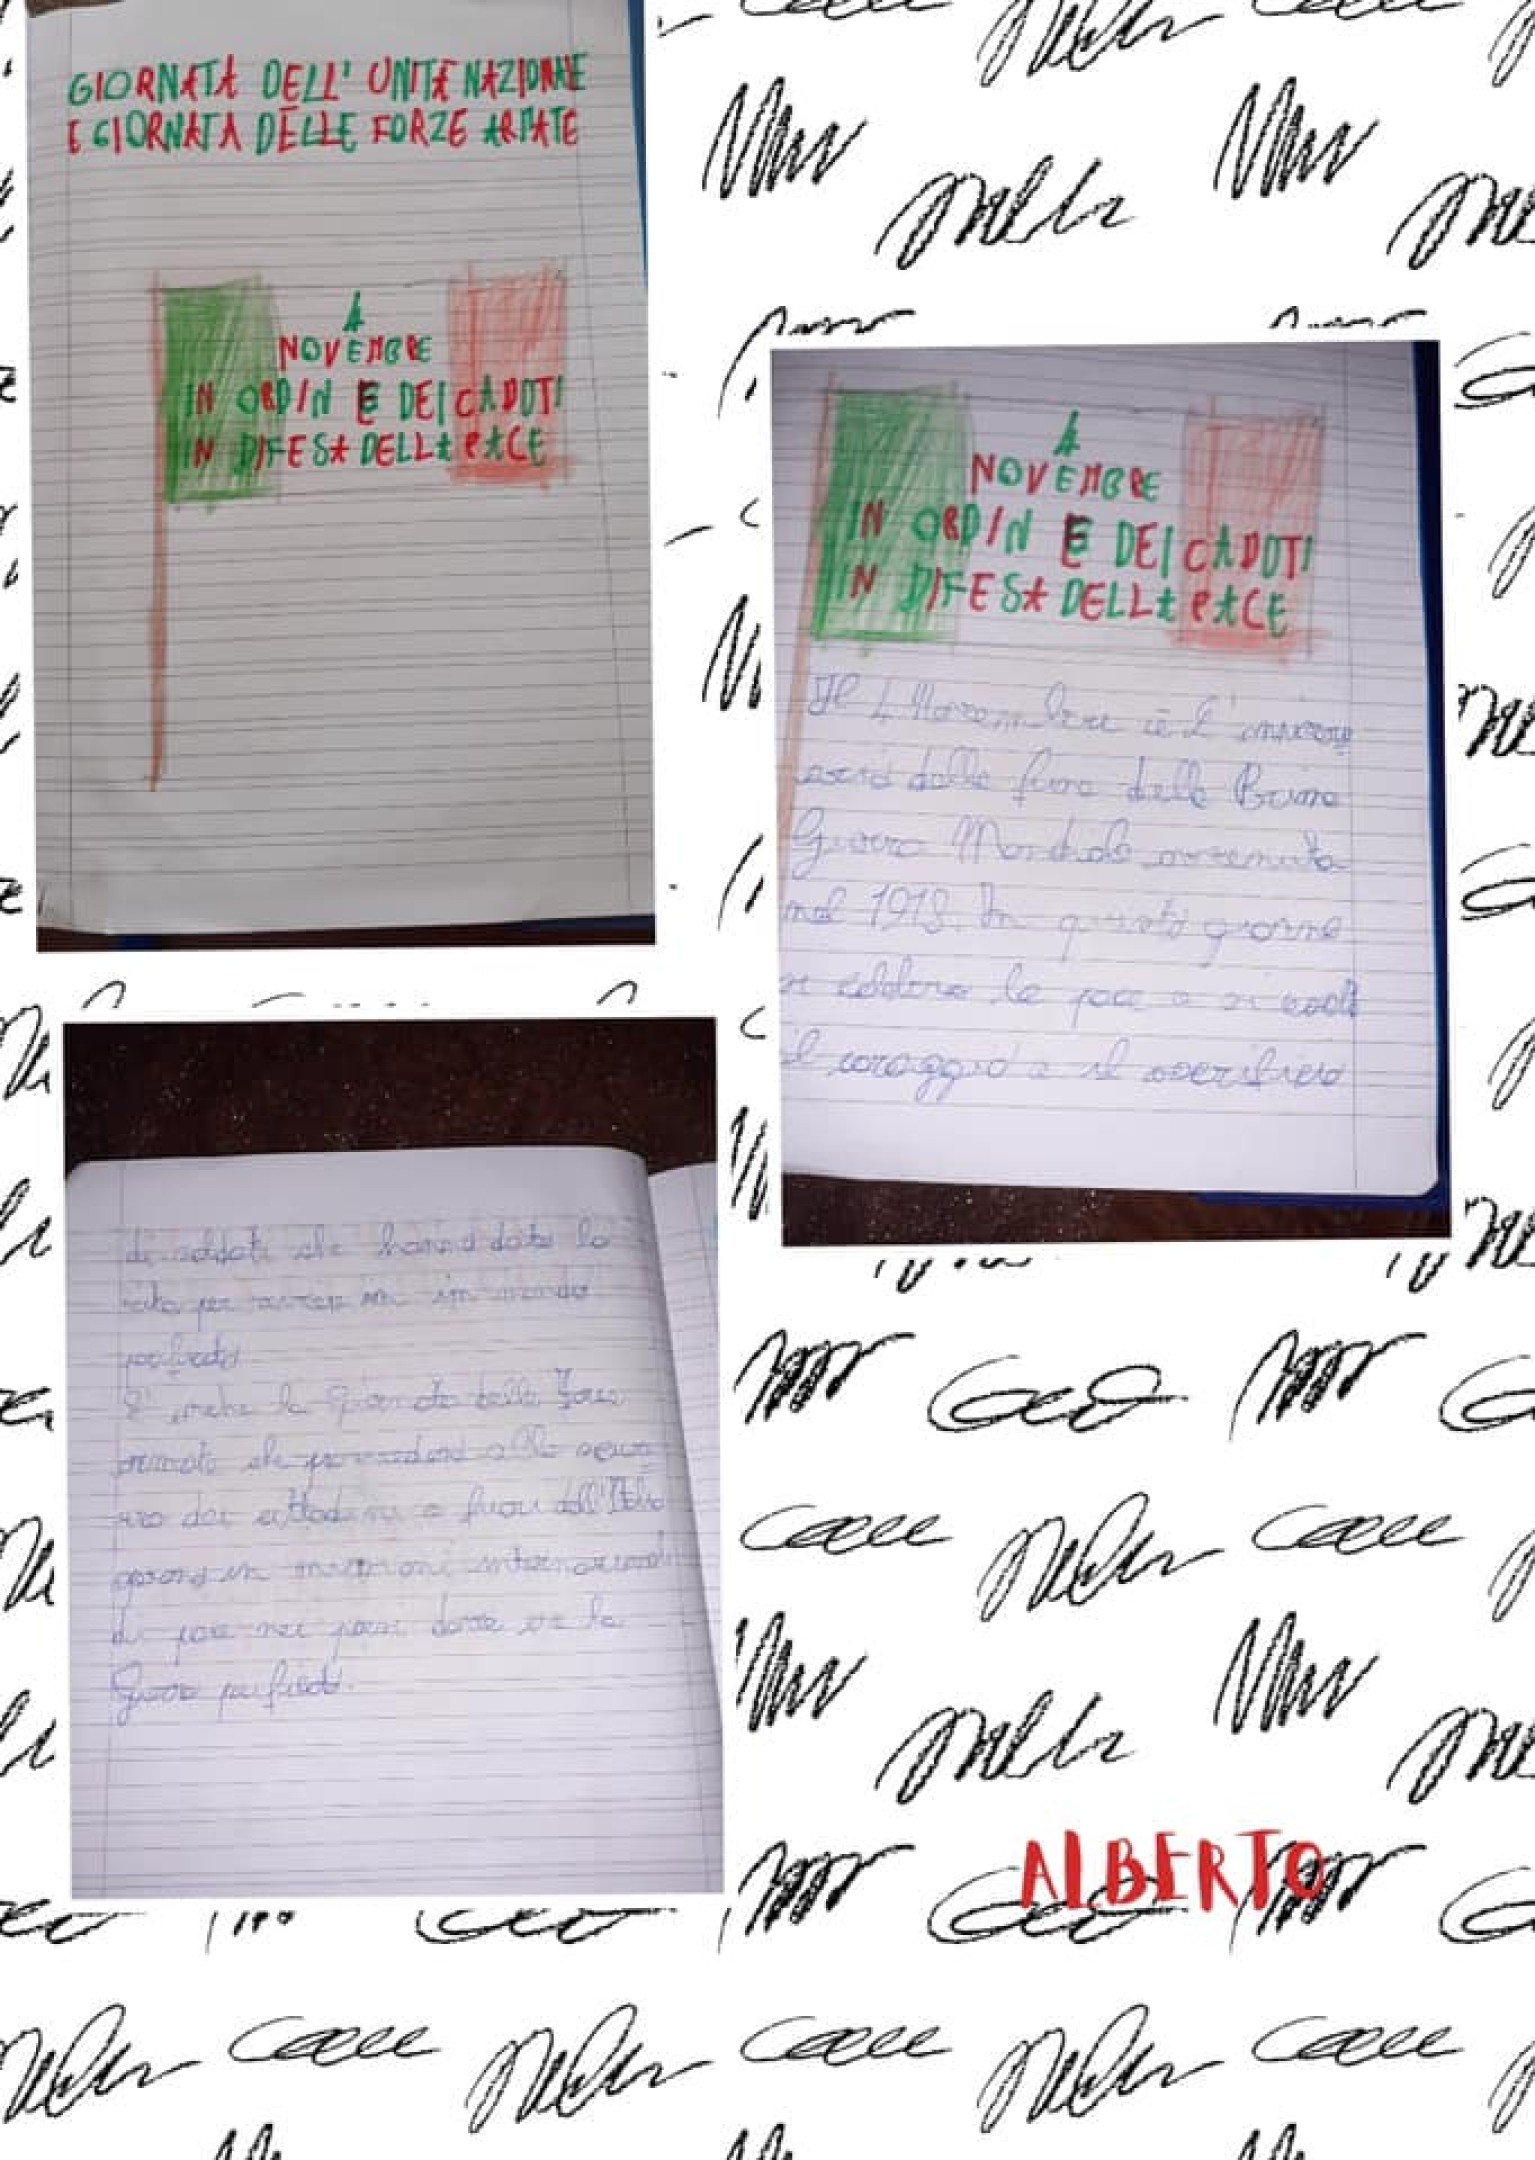 GIORNATA DELL' UNITÀ NAZIONALE
E GIORNATA DELLE FORZE ARMATE
4
NOVEMBRE
IN ORDIN E DEI CADUTI
IN DIFESA DELLA PACE
4
NOVEMBRE
IN ORDIN E DEI CADUTI
IN DIFESA DELLA PACE
Il 4 Novembre è l'
della fine della Prima
Guerra Mondiale avvenuta
nel 1918. In questo giorno
si celebra la pace e si
il coraggio e il sacrificio
di soldati che hanno dato la
vita per in un mondo
E' anche la Giornata delle Forze
armate che provvedono alla
dei cittadini e fuori dall'Italia
in missioni internazionali
di pace nei paesi dove la
ALBERTO